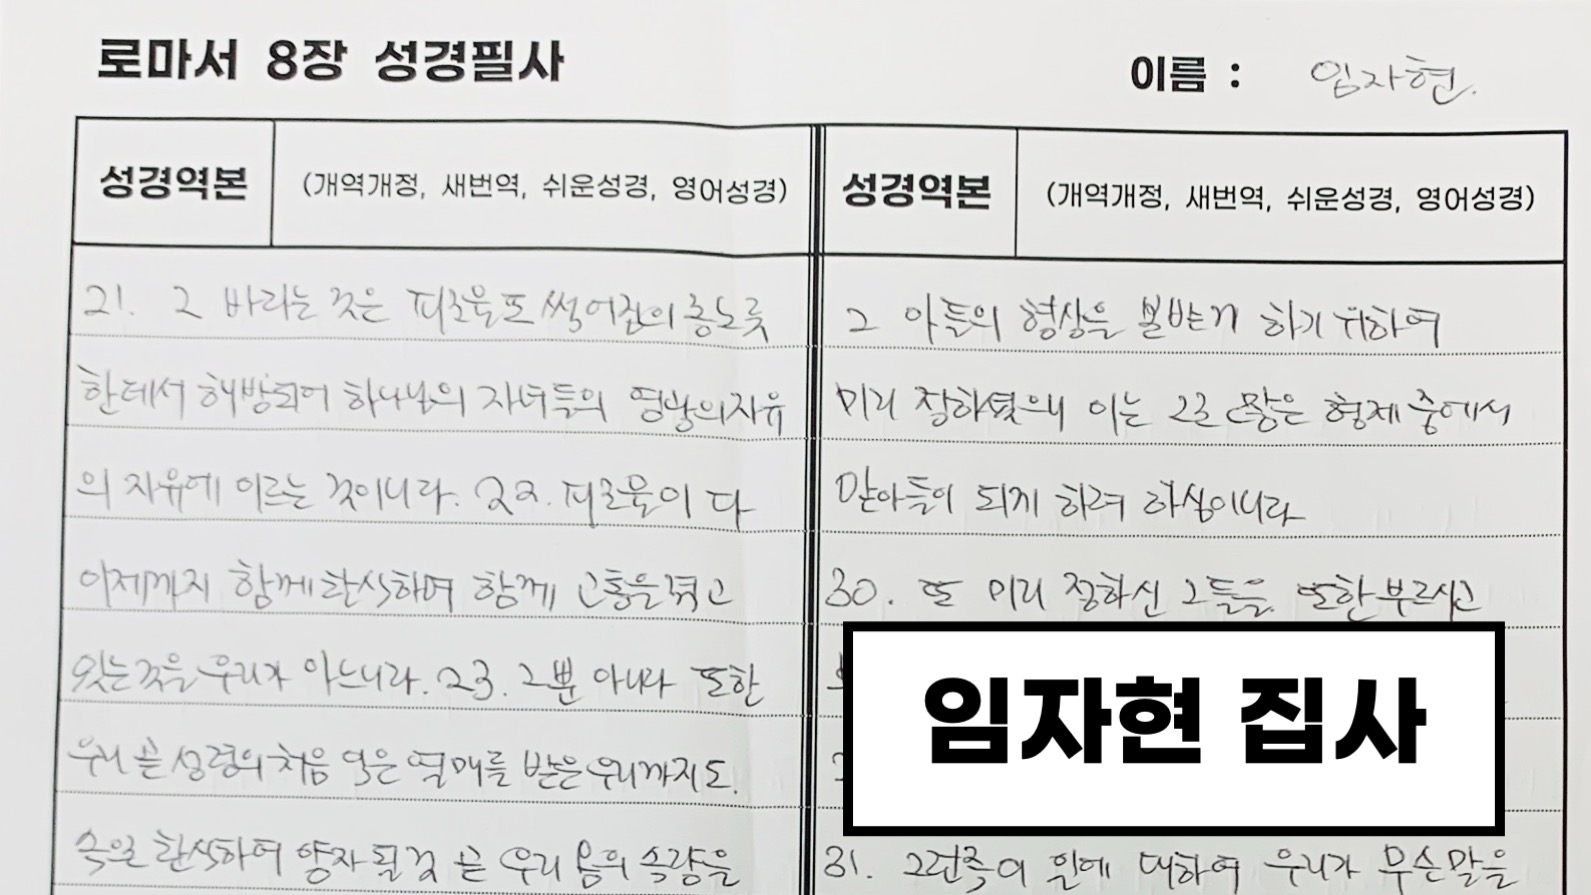 로마서 8장 성경필사
이름 : 임자현.
성경역본 (개역개정, 새번역, 쉬운성경, 영어성경)
21. 그 바라는 것은 피조물도 썩어짐의 종노릇
한데서 해방되어 하나님의 자녀들의 영광의자유
의 자유에 이르는 것이니라. 22. 피조물이 다
이제까지 함께 탄식하며 함께 고통을 겪고
있는것을 우리가 아느니라. 23. 그뿐 아니라 또한
우리 곧 성령의 처음 익은 열매를 받은 우리까지도.
속으로 탄식하여 양자 될것 곧 우리 몸의 속량을
성경역본 (개역개정, 새번역, 쉬운성경, 영어성경)
그 아들의 형상을 본받게 하기 위하여
미리 정하셨으니 이는 그로 많은 형제 중에서
맏아들이 되게 하려 하심이니라
30. 또 미리 정하신 그들을 또한 부르시고
임자현 집사
31. 그런즉 이 일에 대하여 우리가 무슨말을